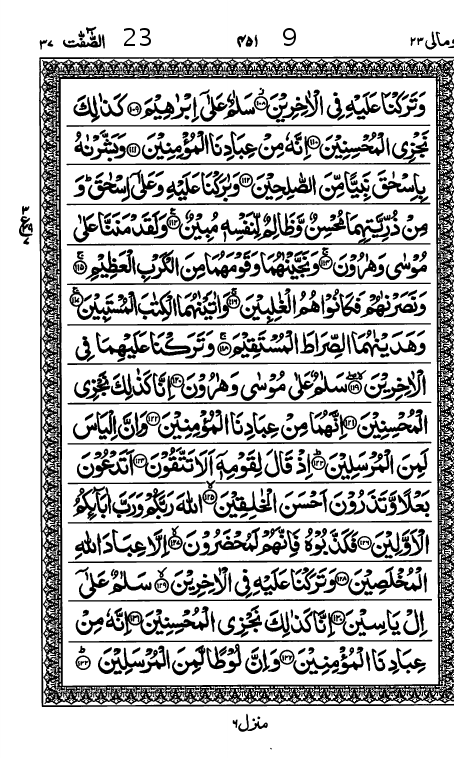 ومالی ۲۳ 9 ۴۵۱ 23 الصّٰٓفّٰت ۳۷
وَتَرَكْنَا عَلَيْهِ فِي الْاٰخِرِيْنَ ۱۰۸ سَلٰمٌ عَلٰٓى اِبْرٰهِيْمَ ۱۰۹ كَذٰلِكَ
نَجْزِي الْمُحْسِنِيْنَ ۱۱۰ اِنَّهٗ مِنْ عِبَادِنَا الْمُؤْمِنِيْنَ ۱۱۱ وَبَشَّرْنٰهُ
بِاِسْحٰقَ نَبِيًّا مِّنَ الصّٰلِحِيْنَ ۱۱۲ وَبٰرَكْنَا عَلَيْهِ وَعَلٰٓى اِسْحٰقَ ؕ وَ
مِنْ ذُرِّيَّتِهِمَا مُحْسِنٌ وَّظَالِمٌ لِّنَفْسِهٖ مُبِيْنٌ ۱۱۳ وَلَقَدْ مَنَنَّا عَلٰى
مُوْسٰى وَهٰرُوْنَ ۱۱۴ وَنَجَّيْنٰهُمَا وَقَوْمَهُمَا مِنَ الْكَرْبِ الْعَظِيْمِ ۱۱۵
وَنَصَرْنٰهُمْ فَكَانُوْا هُمُ الْغٰلِبِيْنَ ۱۱۶ وَاٰتَيْنٰهُمَا الْكِتٰبَ الْمُسْتَبِيْنَ ۱۱۷
وَهَدَيْنٰهُمَا الصِّرَاطَ الْمُسْتَقِيْمَ ۱۱۸ وَتَرَكْنَا عَلَيْهِمَا فِي
الْاٰخِرِيْنَ ۱۱۹ سَلٰمٌ عَلٰى مُوْسٰى وَهٰرُوْنَ ۱۲۰ اِنَّا كَذٰلِكَ نَجْزِي
الْمُحْسِنِيْنَ ۱۲۱ اِنَّهُمَا مِنْ عِبَادِنَا الْمُؤْمِنِيْنَ ۱۲۲ وَاِنَّ اِلْيَاسَ
لَمِنَ الْمُرْسَلِيْنَ ۱۲۳ اِذْ قَالَ لِقَوْمِهٖٓ اَلَا تَتَّقُوْنَ ۱۲۴ اَتَدْعُوْنَ
بَعْلًا وَّتَذَرُوْنَ اَحْسَنَ الْخٰلِقِيْنَ ۱۲۵ اللّٰهَ رَبَّكُمْ وَرَبَّ اٰبَآئِكُمُ
الْاَوَّلِيْنَ ۱۲۶ فَكَذَّبُوْهُ فَاِنَّهُمْ لَمُحْضَرُوْنَ ۱۲۷ اِلَّا عِبَادَ اللّٰهِ
الْمُخْلَصِيْنَ ۱۲۸ وَتَرَكْنَا عَلَيْهِ فِي الْاٰخِرِيْنَ ۱۲۹ سَلٰمٌ عَلٰٓى
اِلْ يَاسِيْنَ ۱۳۰ اِنَّا كَذٰلِكَ نَجْزِي الْمُحْسِنِيْنَ ۱۳۱ اِنَّهٗ مِنْ
عِبَادِنَا الْمُؤْمِنِيْنَ ۱۳۲ وَاِنَّ لُوْطًا لَّمِنَ الْمُرْسَلِيْنَ ۱۳۳
منزل ۶